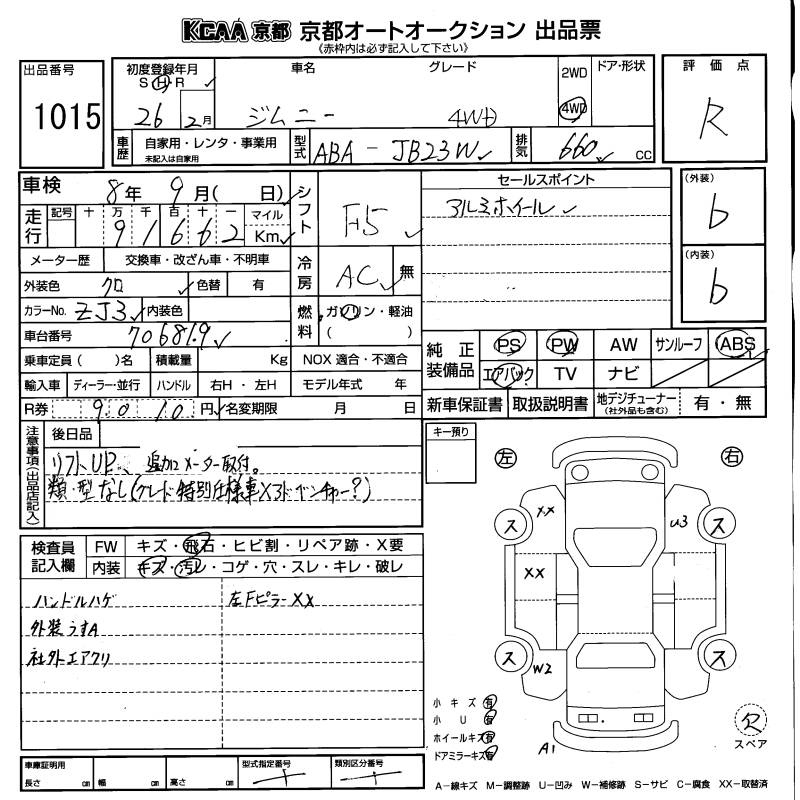 KCAA 京都 京都オートオークション 出品票
《赤枠内は必ず記入して下さい》
出品番号 1015
初度登録年月 S H R 26 2月
車名 ジムニー
グレード 4WD
2WD 4WD
ドア・形状
評価点 R
車歴 自家用・レンタ・事業用 未記入は自家用
型式 ABA-JB23W
排気 660 cc
車検 8年 9月( 日)
走行 記号 十 万 千 百 十 一 マイル Km
9 1 6 6 2
シフト F5
セールスポイント
アルミホイール
(外装) b
(内装) b
メーター歴 交換車・改ざん車・不明車
冷房 AC 無
外装色 クロ 色替 有
カラーNo. ZJ3 内装色
燃料 ガソリン・軽油 ( )
車台番号 706819
乗車定員( )名 積載量 Kg NOX 適合・不適合
輸入車 ディーラー・並行 ハンドル 右H・左H モデル年式 年
R券 9010円 名変期限 月 日
純正装備品 PS PW AW サンルーフ ABS
エアバック TV ナビ
新車保証書 取扱説明書 地デジチューナー (社外品も含む) 有・無
注意事項(出品店記入)
後日品
リフトUP、追加メーター取付。
類・型なし(グレード特別仕様車Xアドベンチャー?)
キー預り
左 右
検査員記入欄 FW キズ・飛石・ヒビ割・リペア跡・X要
内装 キズ・汚レ・コゲ・穴・スレ・キレ・破レ
ハンドルハゲ 左FピラーXX
外装うすA
社外エアクリ
XX U3
ス ス
XX
ス ス
W2
A1
小キズ 有
小U 有
ホイールキズ 有
ドアミラーキズ 有
欠
スペア
車庫証明用 長さ cm 幅 cm 高さ cm
型式指定番号 類別区分番号
A-線キズ M-調整跡 U-凹み W-補修跡 S-サビ C-腐食 XX-取替済